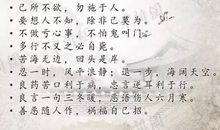 己所不欲，勿施于人。
要想人不知，除非己莫为。
不做亏心事，不怕鬼叫门。
多行不义之必自毙。
苦海无边，回头是岸。
忍一时，风平浪静；退一步，海阔天空。
良药苦口利于病，忠言逆耳利于行。
良言一句三冬暖，恶语伤人六月寒。
善恶随人作，祸福自己招。